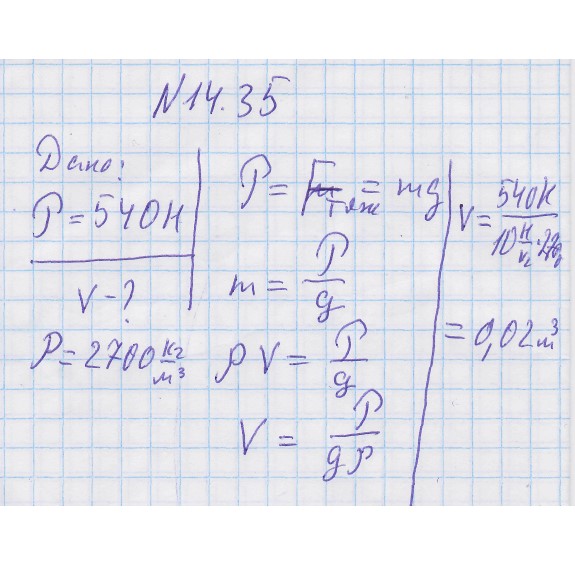 N 14.35
Дано:
P = 540 Н
V - ?
ρ = 2700 кг/м³
P = Fтяж = mg
m = P/g
ρV = P/g
V = P/gρ
V = 540 Н
= 0,02 м³